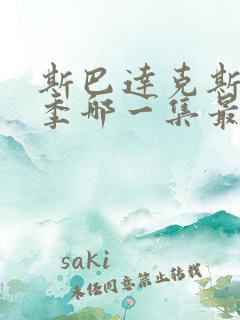 斯巴达克斯
季哪一集最
saki
未经同意禁止转载